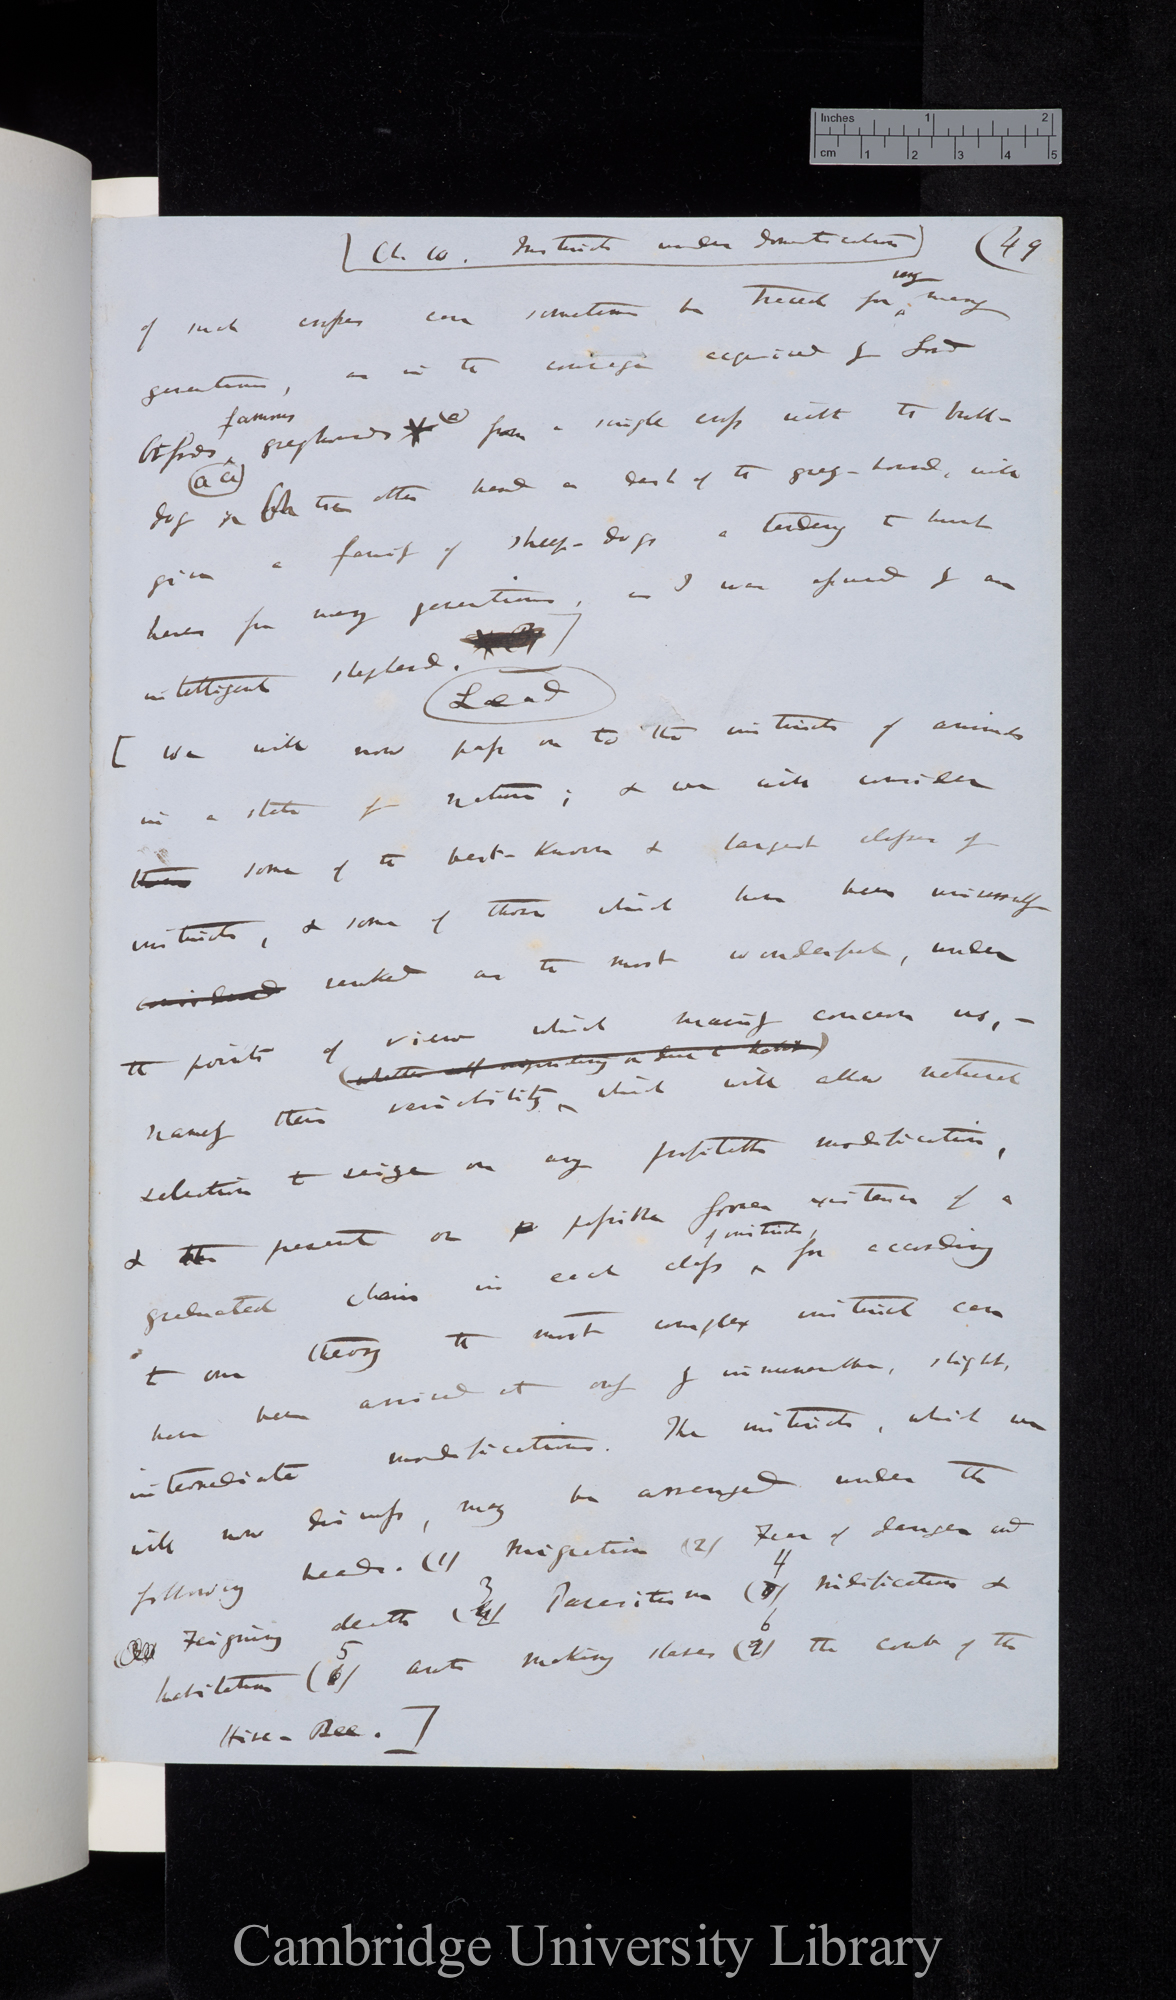 Inches 1 2
cm 1 2 3 4 5
[Ch. 10. Instincts under Domestication] (49
very
of such crosses can sometimes be traced for many
generations, as in the courage acquired by Lord
famous
Orfords greyhounds (a) from a single cross with the bull-
(a a)
dog on the other hand a dash of the grey-hound, will
give a family of sheep-dogs a tendency to hunt
hares for many generations, as I was assured by an
intelligent shepherd. ]
Lead
[ We will now pass on to the instincts of animals
in a state of nature; & we will consider
them some of the best-known & largest classes of
instincts, & some of those which have been universally
considered ranked as the most wonderful, under
the points of view which mainly concern us, —
(whether all depending on due to habit)
namely their variability, which will allow natural
selection to seize on any profitable modification,
& the present or possible former existence of a
of instincts,
graduated chain in each class, for according
to our theory the most complex instinct can
have been arrived at only by innumerable, slight,
intermediate modifications. The instincts, which we
will now discuss, may be arranged under the
following heads. (1) Migration (2) Fear of danger and
3 4
Feigning death ( ) Parasitism ( ) Nidification &
5 6
habitation ( ) ants making slaves ( ) the comb of the
Hive-Bee. ]
Cambridge University Library